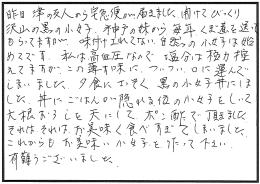 昨日 津の友人から宅急便が届きました。開けてびっくり
沢山の黒の小女子、神戸の妹から毎年くぎ煮を送って
もらってますが、味付けされてない自然の小女子は始
めてです。私は高血圧なので塩分は極力控
えてますが、この薄す味に、ついつい口に運んで
しまいました。夕食にさっそく黒の小女子丼にしま
した。丼にごはんが隠れる位の小女子をして
大根おろしを天にして、ポン酢で頂きました
それは、それは、お美味しく食べすぎてしまいました。
これからもお美味しい小女子を作って下さい。
有難うございました。